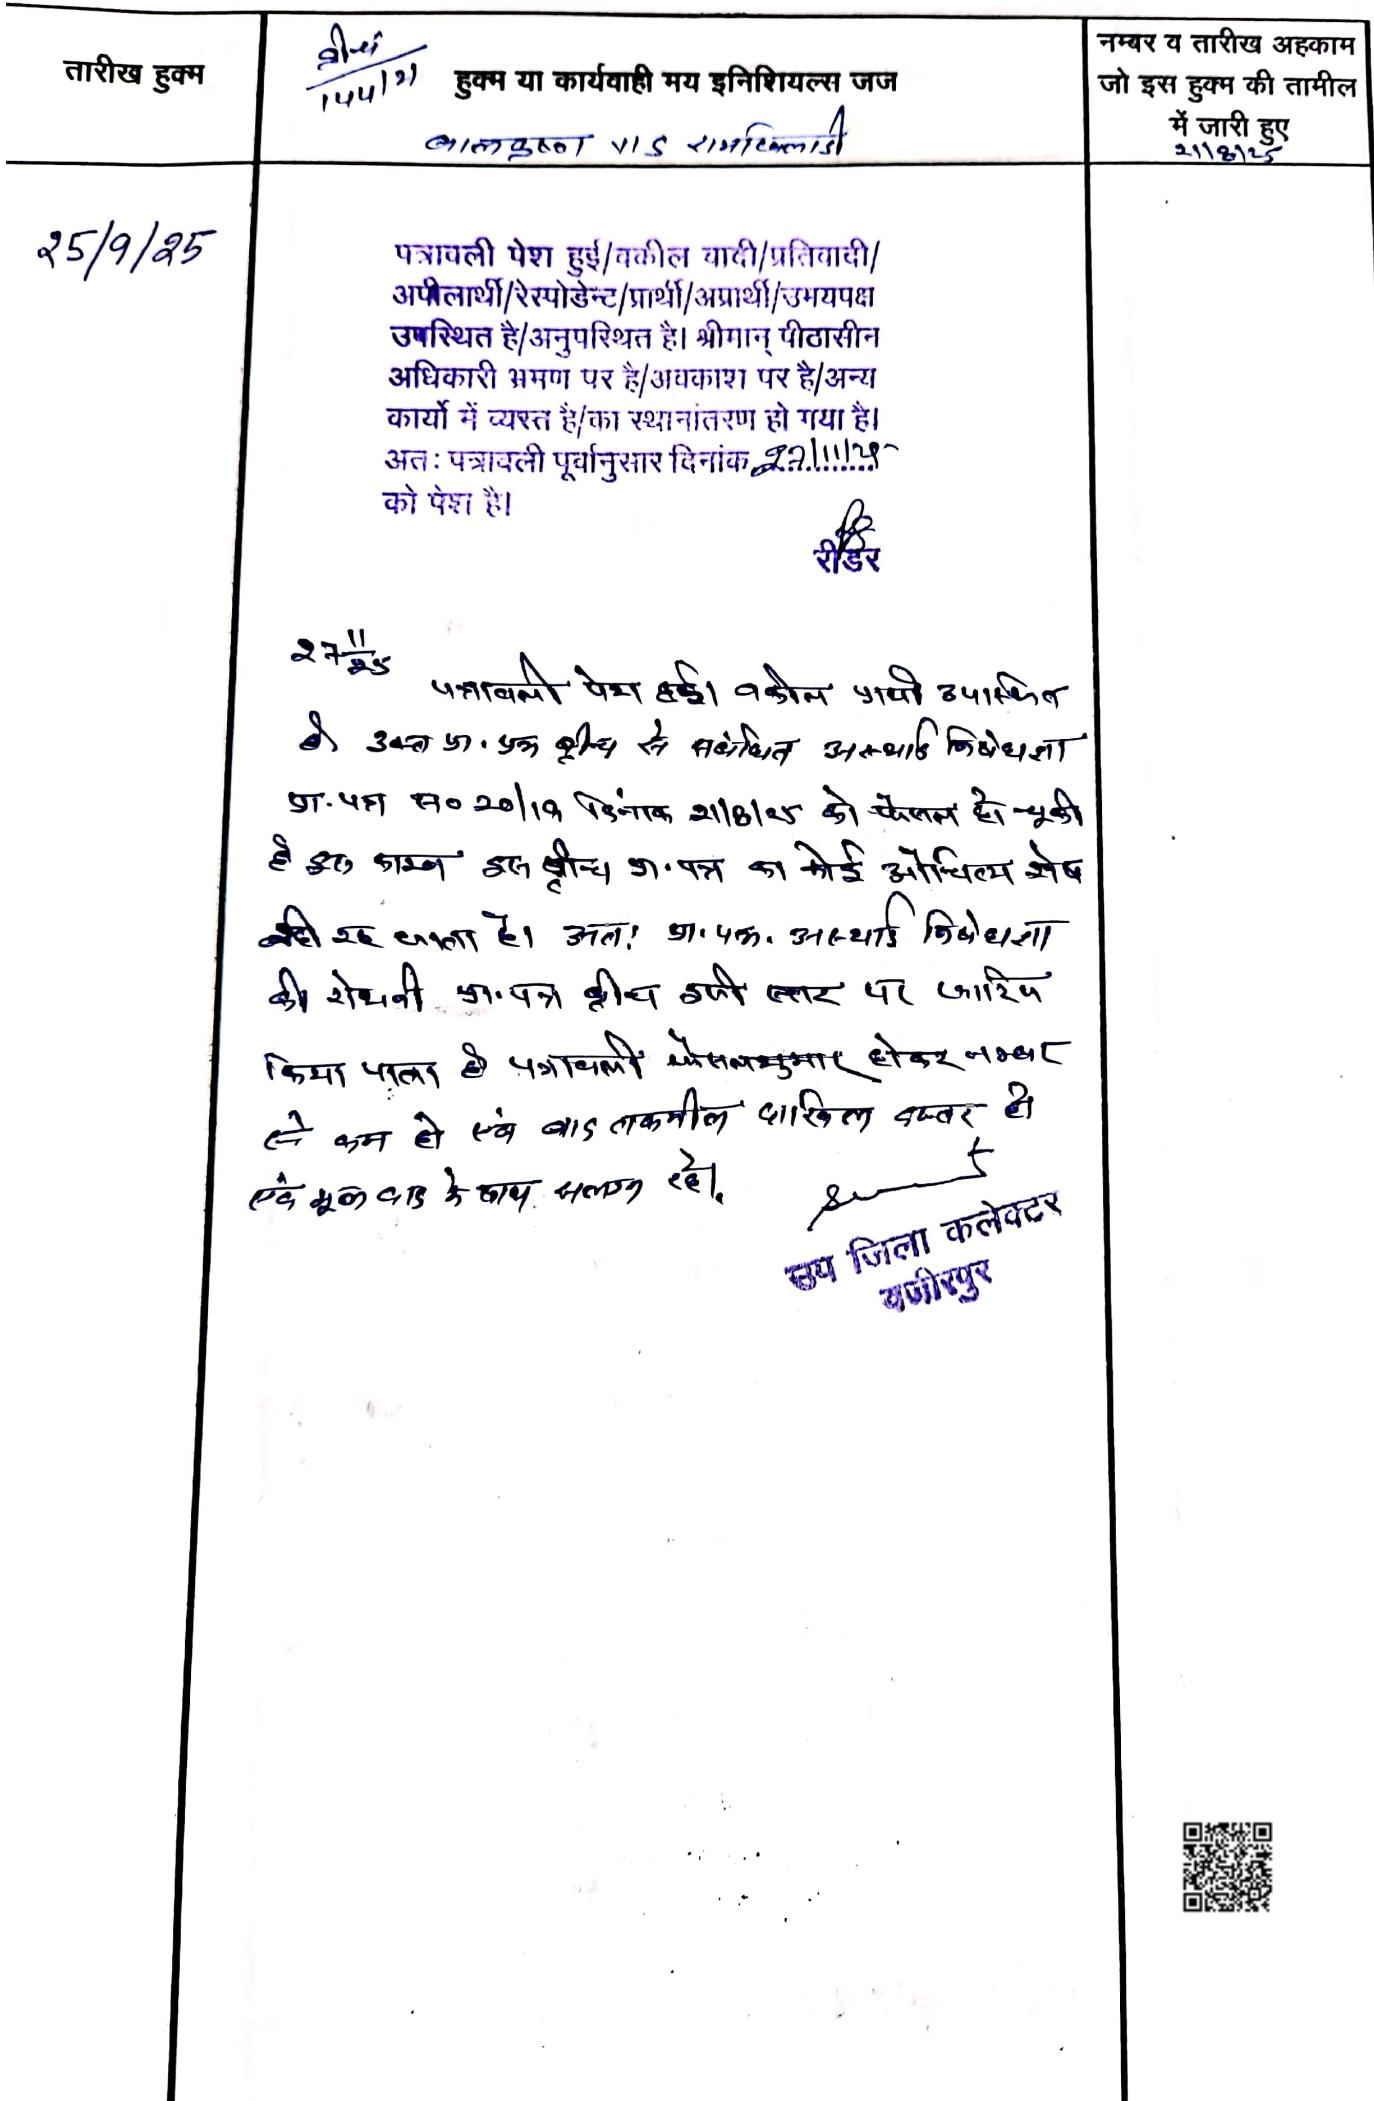 तारीख हुक्म
144/21
हुक्म या कार्यवाही मय इनिशियल्स जज
बालकृष्ण v/s रामखिलाडी
नम्बर व तारीख अहकाम
जो इस हुक्म की तामील
में जारी हुए
21/8/25
25/9/25
पत्रावली पेश हुई/वकील वादी/प्रतिवादी/
अपीलार्थी/रेस्पोडेन्ट/प्रार्थी/अप्रार्थी/उभयपक्ष
उपस्थित है/अनुपस्थित है। श्रीमान् पीठासीन
अधिकारी भ्रमण पर है/अवकाश पर है/अन्य
कार्यो में व्यस्त है/का स्थानांतरण हो गया है।
अतः पत्रावली पूर्वानुसार दिनांक 27/11/25
को पेश है।
रीडर
27 11/25
पत्रावली पेश हुई। वकील प्रार्थी उपस्थित
है उक्त प्रा. पत्र ब्रीच से संबंधित अस्थाई निषेधाज्ञा
प्रा. पत्र स० 20/19 दिनांक 21/8/25 को फैसल हो चूकी
है इस कारण इस ब्रीच प्रा. पत्र का कोई औचित्य शेष
नही रह जाता है। अतः प्रा. पत्र. अस्थाई निषेधाज्ञा
की प्रा. पत्र ब्रीच इसी स्तर पर खारिज
किया जाता है पत्रावली फैसलशुमार होकर नम्बर
से कम हो एवं बाद तकमील दाखिल दफ्तर हो
एवं मूल वाद के साथ सलग्न रहे।
उप जिला कलेक्टर
वजीरपुर